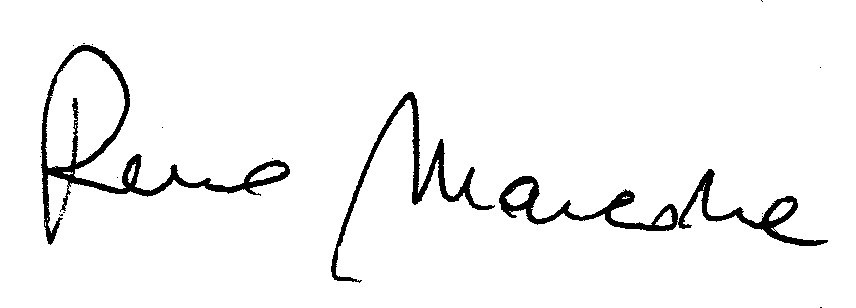 Rene Maresche